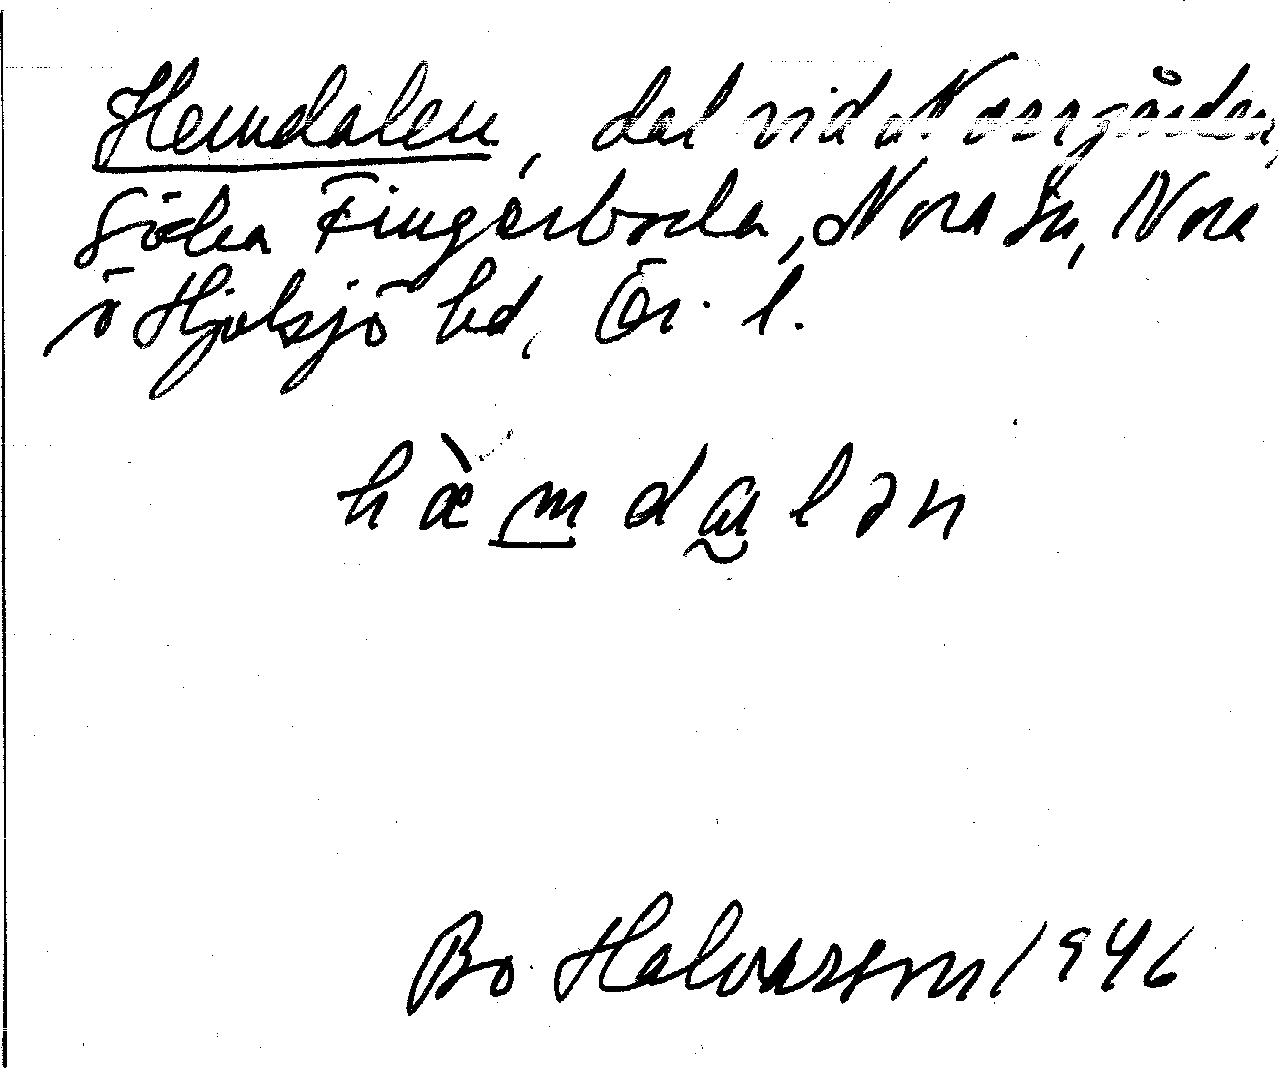 Hemdalen, dal vid Norrgården,
Södra Fingerboda, Nora sn, Nora
o Hjulsjö hd, Ör. l.
hæ̀mdalən
Bo Halvarsson 1946